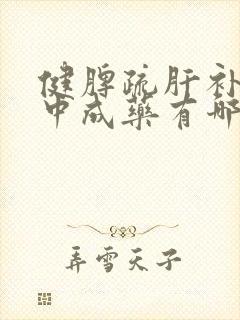 健脾疏肝补
中成藥有哪
弄雪天子